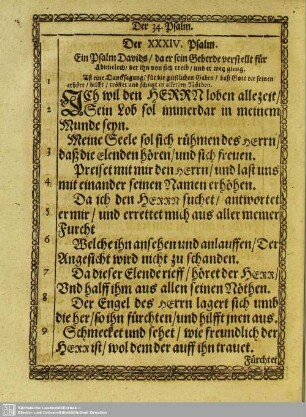 Der 34. Psalm.
Der XXXIV. Psalm.
Ein Psalm Davids / da er sein Geberde verstellt für
Abimelech / der ihn von sich treib / und er weg gieng.
Ist eine Dancksagung / für die geistlichen Gaben / daß Gott die seinen
erhört / hilfft / tröstet und schützt in allerley Nöthen.
1 ICh wil den HERRN loben allezeit /
2 Sein Lob sol immerdar in meinem
Munde seyn.
Meine Seele sol sich rühmen des HErrn /
3 daß die elenden hören / und sich freuen.
Preiset mit mir den HErrn / und last uns
4 mit einander seinen Namen erhöhen.
Da ich den HERRN suchet / antwortet
5 er mir / und errettet mich aus aller meiner
Furcht
6 Welche ihn ansehen und anlauffen / Der
Angesicht wird nicht zu schanden.
7 Da dieser Elende rieff / höret der HERR /
Und halff ihm aus allen seinen Nöthen.
8 Der Engel des HErrn lagert sich umb
die her / so ihn fürchten / und hilfft jnen aus.
9 Schmecket und sehet / wie freundlich der
HERR ist / wol dem der auff ihn trauet.
Fürchtet